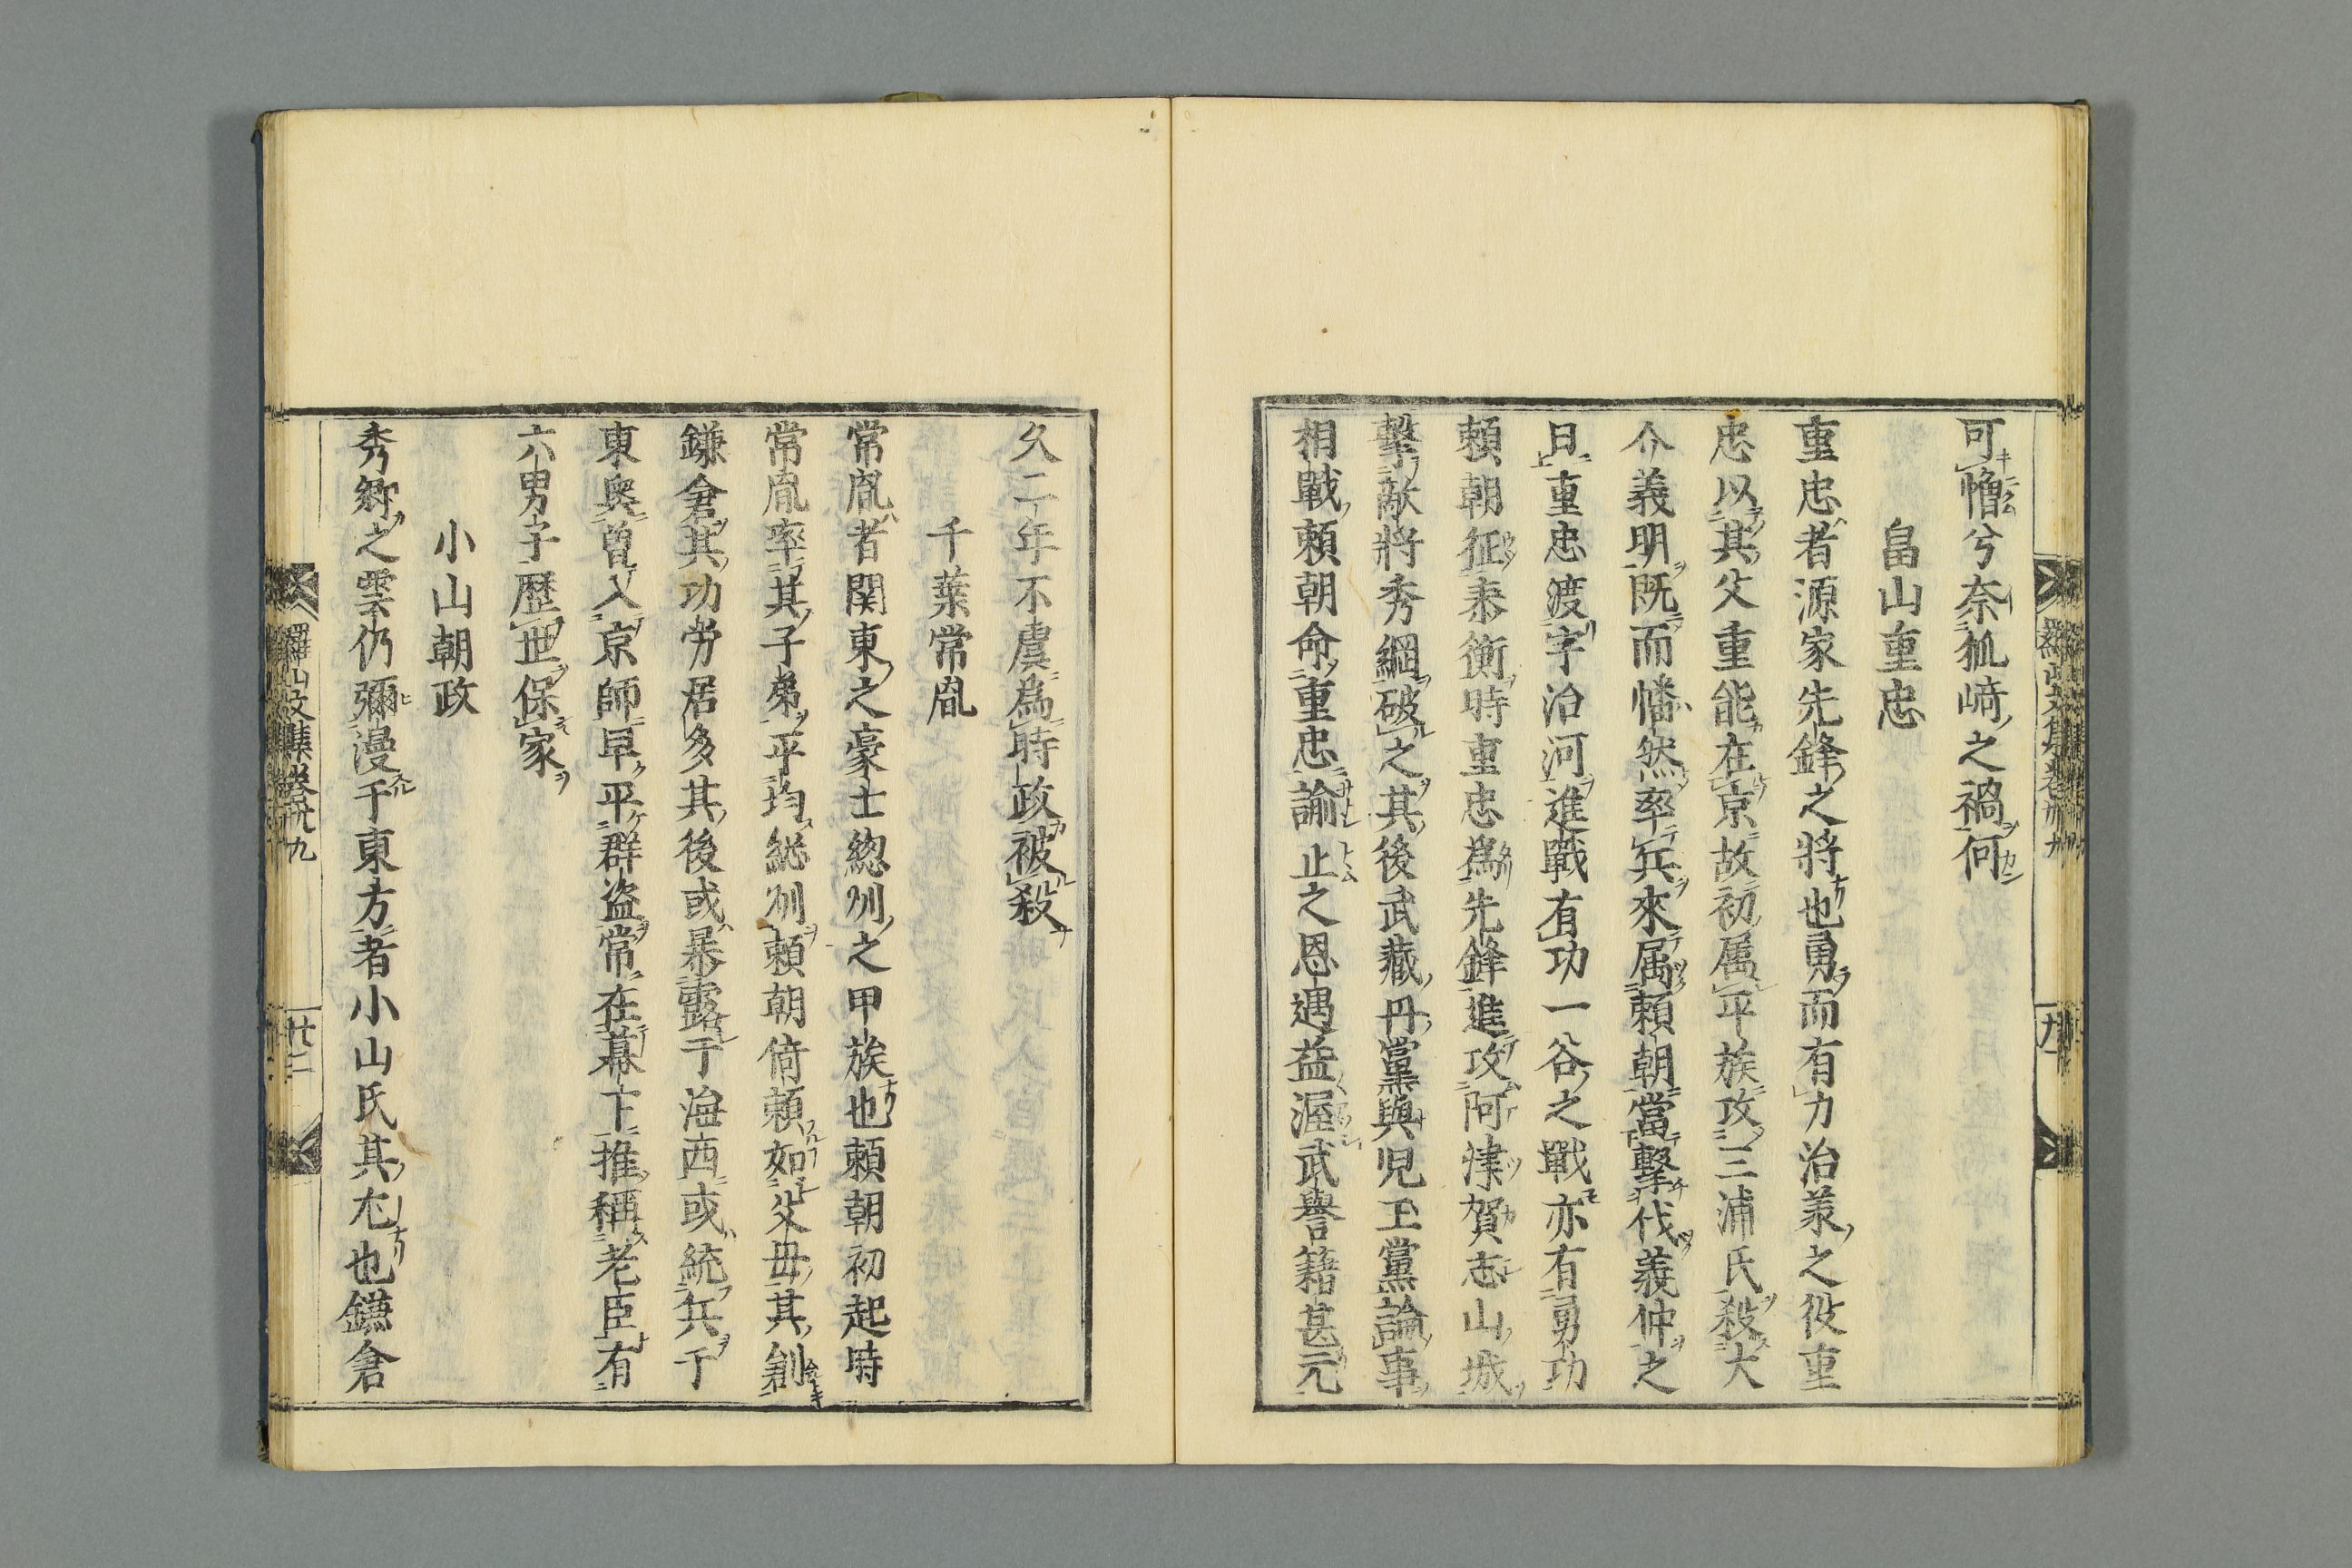 可憎兮奈狐﨑之禍何
畠山重忠
重忠者源家先鋒之將也勇而有力治羕之役重
忠以其父重能在京故初属平族攻三浦氏殺大
介義明既而幡然率兵來属頼朝當擊伐義仲之
日重忠渡宇治河進戰有功一谷之戰亦有勇功
頼朝征泰衡時重忠爲先鋒進攻阿津賀志山城
擊敵將秀綱破之其後武藏丹黨與児玉黨論事
相戰頼朝命重忠諭止之恩遇益渥武譽籍甚元
久二年不虞爲時政被殺
千葉常胤
常胤者関東之豪士總州之甲族也頼朝初起時
常胤率其子弟平均総州頼朝倚頼如父母其創
鎌倉其功労居多其後或暴露于海西或統兵于
東奥曽入京師早平群盗常在幕下推稱老臣有
六男子歴世保家
小山朝政
秀郷之雲仍彌漫于東方者小山氏其尤也鎌倉
羅山文集卷卅九
廿二